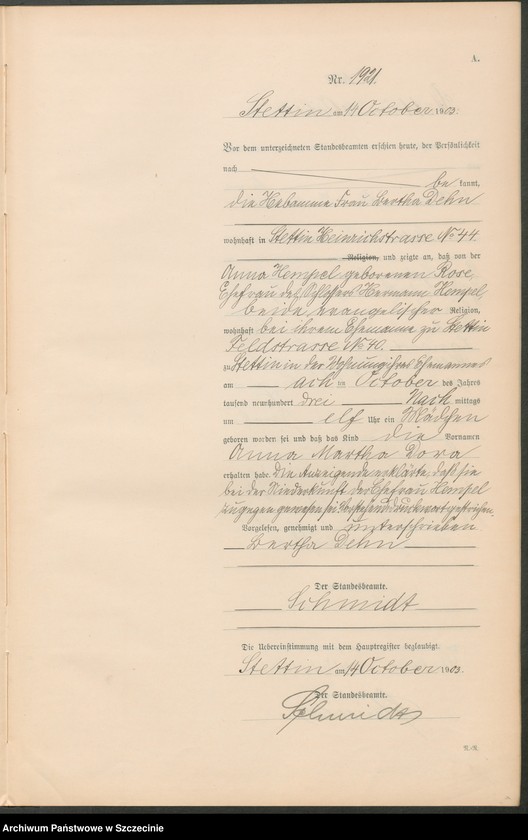 A.
Nr. 1921.
Stettin am 14 October 1903.
Vor dem unterzeichneten Standesbeamten erschien heute, der Persönlichkeit
nach
be kannt,
die Hebamme Frau Bertha Dehn
wohnhaft in Stettin Heinrichstrasse No 44
Religion, und zeigte an, daß von der
Anna Hempel geborenen Rose,
Ehefrau des Schlossers Hermann Hempel,
beide evangelischer Religion,
wohnhaft bei ihrem Ehemanne zu Stettin
Feldstrasse No 40.
zu Stettin in der Wohnung ihres Ehemannes
am acht en October des Jahres
tausend neunhundert drei Nach mittags
um elf Uhr ein Mädchen
geboren worden sei und daß das Kind die Vornamen
Anna Martha Dora
erhalten habe. Die Anzeigende erklärte, daß sie
bei der Niederkunft der Ehefrau Hempel
zugegen gewesen sei. Vorstehend Druckwort gestrichen.
Vorgelesen, genehmigt und unterschrieben
Bertha Dehn
Der Standesbeamte.
Schmidt
Die Uebereinstimmung mit dem Hauptregister beglaubigt.
Stettin am 14 October 1903.
Der Standesbeamte.
Schmidt
Archiwum Państwowe w Szczecinie